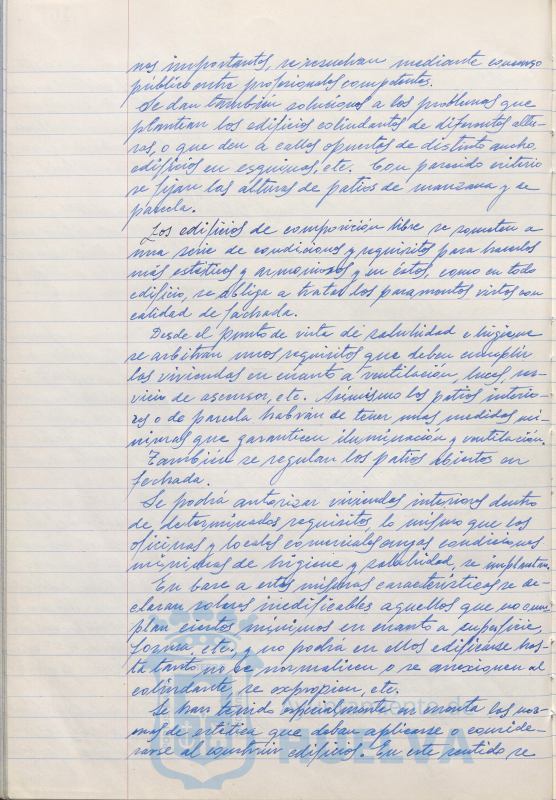 nos importantes, se resuelvan mediante concurso
público entre profesionales competentes.
Se dan también soluciones a los problemas que
plantean los edificios colindantes de diferentes altu-
ras, o que den a calles opuestas de distinto ancho,
edificios en esquinas, etc. Con parecido criterio
se fijan las alturas de patios de manzana y de
parcela.
Los edificios de composición libre se someten a
una serie de condiciones y requisitos para hacerlos
más estéticos y armoniosos y en éstos, como en todo
edificio, se obliga a tratar los paramentos vistos con
calidad de fachada.
Desde el punto de vista de salubridad e higiene
se arbitran unos requisitos que deben cumplir
las viviendas en cuanto a ventilación, luces, ser-
vicio de ascensor, etc. Asimismo los patios interio-
res o de parcela habrán de tener unas medidas mí-
nimas que garanticen iluminación y ventilación.
También se regulan los patios abiertos en
fachada.
Se podrá autorizar viviendas interiores dentro
de determinados requisitos, lo mismo que las
oficinas y locales comerciales cuyas condiciones
mínimas de higiene y salubridad, se implantan.
En base a estas mismas características se de-
claran solares inedificables aquellos que no cum-
plan ciertos mínimos en cuanto a superficie,
forma, etc. y no podrá en ellos edificarse has-
ta tanto no se normalicen o se anexionen al
colindante, se expropien, etc.
Se han tenido especialmente en cuenta las nor-
mas de estética que deban aplicarse o conside-
rarse al construir edificios. En este sentido se
Ayuntamiento de
HUELVA